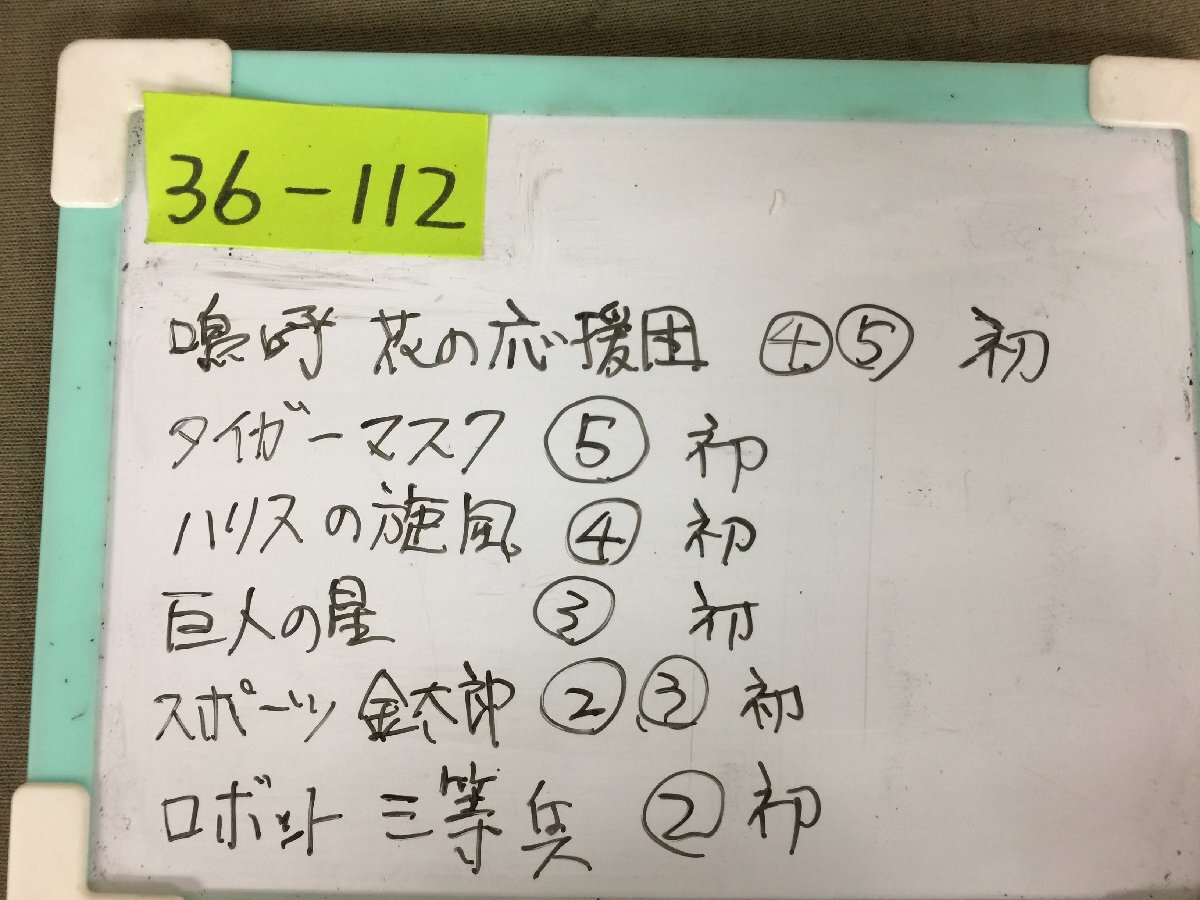 36-112
鳴呼 花の応援団 ④⑤ 初
タイガーマスク ⑤ 初
ハリスの旋風 ④ 初
巨人の星 ③ 初
スポーツ金太郎 ②③ 初
ロボット三等兵 ② 初